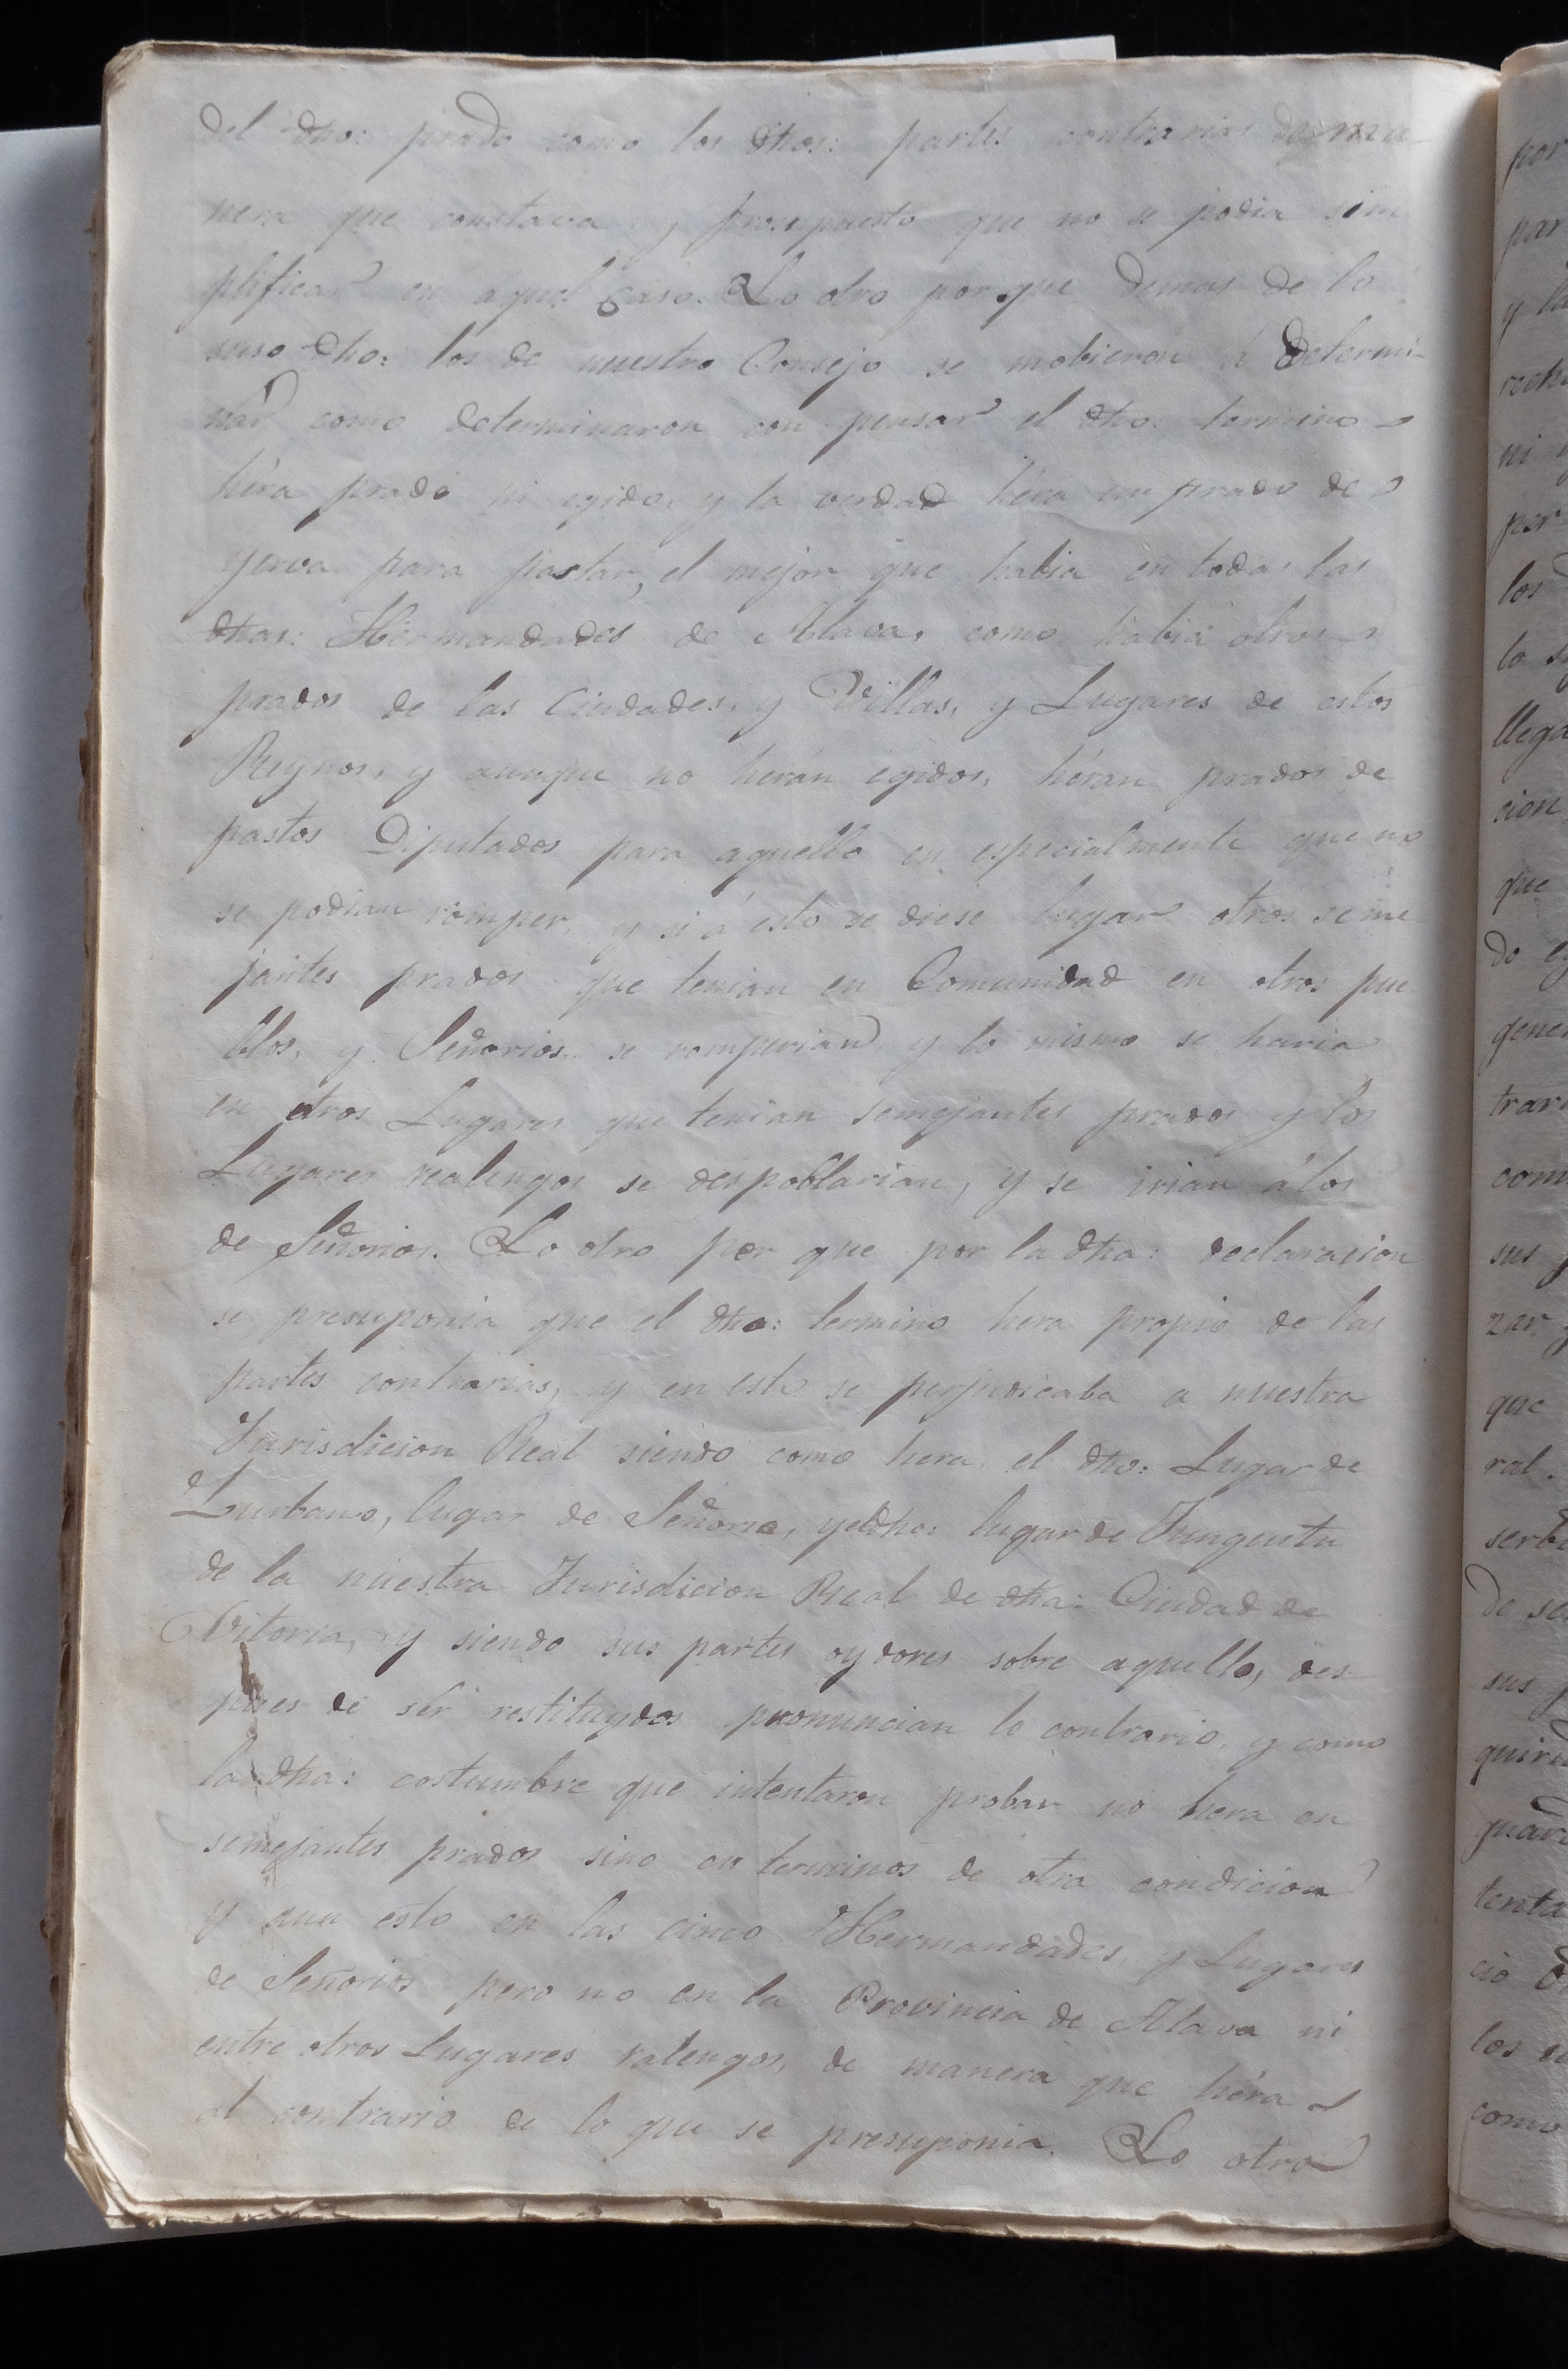 del dho: prado como los dhos: partes contrarias de ma
nera que constava y prosupuesto que no se podia sim
plificar en aquel caso. Lo otro por que demas de lo
suso dho: los de nuestro Consejo se mobieron á determi-
nar como determinaron con pensar el dho: termino
héra prado ni egido, y la verdad héra un prado de
yerva para pastar, el mejor que habia en todas las
dhas: Hermandades de Alava, como habia otros
prados de las Ciudades, y Villas, y Lugares de estos
Reynos, y aunque no herán egidos, héran prados de
pastos Diputados para aquello en especialmente que no
se podian romper, y si á esto se diese lugar otros seme
jantes prados que tenian en Comunidad en otros pue
blos, y Señorios, se romperian y lo mismo se haria
en otros Lugares que tenian semejantes prados y los
Lugares realengos se despoblarian, y se irian á los
de Señorios. Lo otro por que por la dha: declaracion
se presuponia que el dho: termino hera propio de las
partes contrarias, y en esto se perjudicaba a nuestra
Jurisdicion Real siendo como hera, el dho: Lugar de
Zurbano, lugar de Señorio, y el dho: lugar de Junguitu
de la nuestra Jurisdicion Real de dha: Ciudad de
Vitoria, y siendo sus partes oydores sobre aquello, des-
pues de sér restituydos pronuncian lo contrario, y como
la dha: costumbre que intentaron probar no hera en
semejantes prados sino en terminos de otra condicion
y aun esto en las cinco Hermandades, y Lugares
de Señorios pero no en la Provincia de Alava ni
entre otros Lugares ralengos, de manera que héra
al contrario de lo que se presuponia. Lo otro